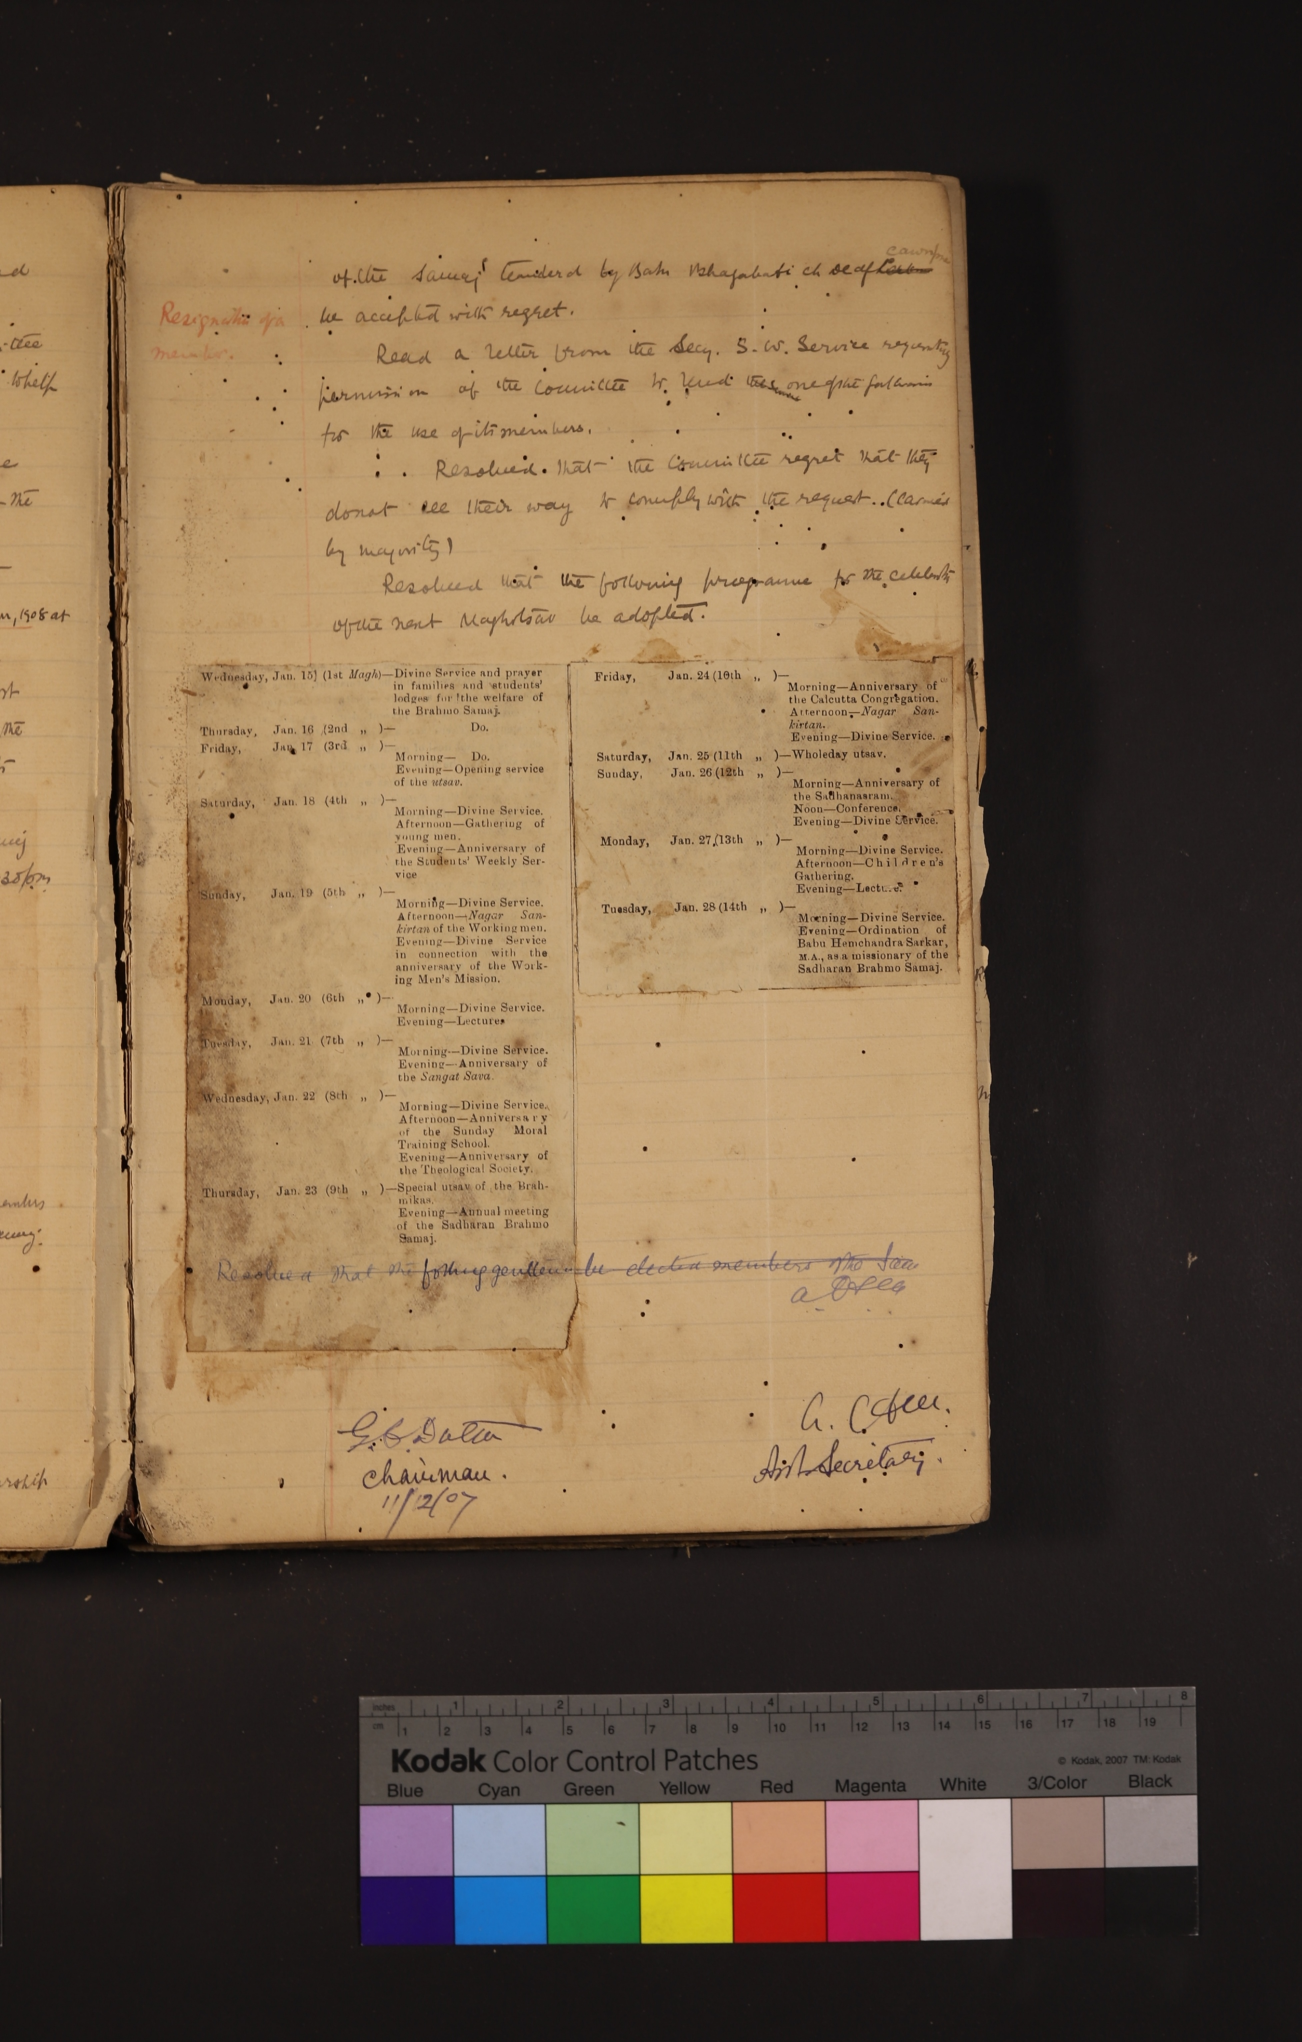 of the Samaj tendered by Babu Bhagabati Ch
Cawnpore
be accepted with regret.
Resignation of a
member.
Read a letter from the Secy. S. W. Service requesting
permission of the Committee to lend one of the
for the use of its members.
Resolved that the Committee regret that they
do not see their way to comply with the request. (Carried
by majority)
Resolved that the following programme for the celebration
of the next Maghotsav be adopted.
Wednesday, Jan. 15 (1st Magh)—Divine Service and prayer
in families and students'
lodges for the welfare of
the Brahmo Samaj.
Thursday, Jan. 16 (2nd „ )— Do.
Friday, Jan. 17 (3rd „ )—
Morning— Do.
Evening—Opening service
of the utsav.
Saturday, Jan. 18 (4th „ )—
Morning—Divine Service.
Afternoon—Gathering of
young men.
Evening—Anniversary of
the Students' Weekly Ser-
vice
Sunday, Jan. 19 (5th „ )—
Morning—Divine Service.
Afternoon—Nagar San-
kirtan of the Working men.
Evening—Divine Service
in connection with the
anniversary of the Work-
ing Men's Mission.
Monday, Jan. 20 (6th „ )—
Morning—Divine Service.
Evening—Lecture.
Tuesday, Jan. 21 (7th „ )—
Morning—Divine Service.
Evening—Anniversary of
the Sangat Sava.
Wednesday, Jan. 22 (8th „ )—
Morning—Divine Service.
Afternoon—Anniversary
of the Sunday Moral
Training School.
Evening—Anniversary of
the Theological Society.
Thursday, Jan. 23 (9th „ )—Special utsav of the Brah-
mikas.
Evening—Annual meeting
of the Sadharan Brahmo
Samaj.
Friday, Jan. 24 (10th „ )—
Morning—Anniversary of
the Calcutta Congregation.
Afternoon—Nagar San-
kirtan.
Evening—Divine Service.
Saturday, Jan. 25 (11th „ )—Wholeday utsav.
Sunday, Jan. 26 (12th „ )—
Morning—Anniversary of
the Sadhanasram.
Noon—Conference.
Evening—Divine Service.
Monday, Jan. 27 (13th „ )—
Morning—Divine Service.
Afternoon—Children's
Gathering.
Evening—Lecture.
Tuesday, Jan. 28 (14th „ )—
Morning—Divine Service.
Evening—Ordination of
Babu Hemchandra Sarkar,
M.A., as a missionary of the
Sadharan Brahmo Samaj.
Resolved that the following gentlemen be elected members of the Samaj
G. C. Dutta
Chairman.
11/12/07
A. C. Sen.
Asst. Secretary.
ttee
to help
the
, 1908 at
the
inches 1 2 3 4 5 6 7 8
cm 1 2 3 4 5 6 7 8 9 10 11 12 13 14 15 16 17 18 19
Kodak Color Control Patches
© Kodak, 2007 TM: Kodak
Blue Cyan Green Yellow Red Magenta White 3/Color Black